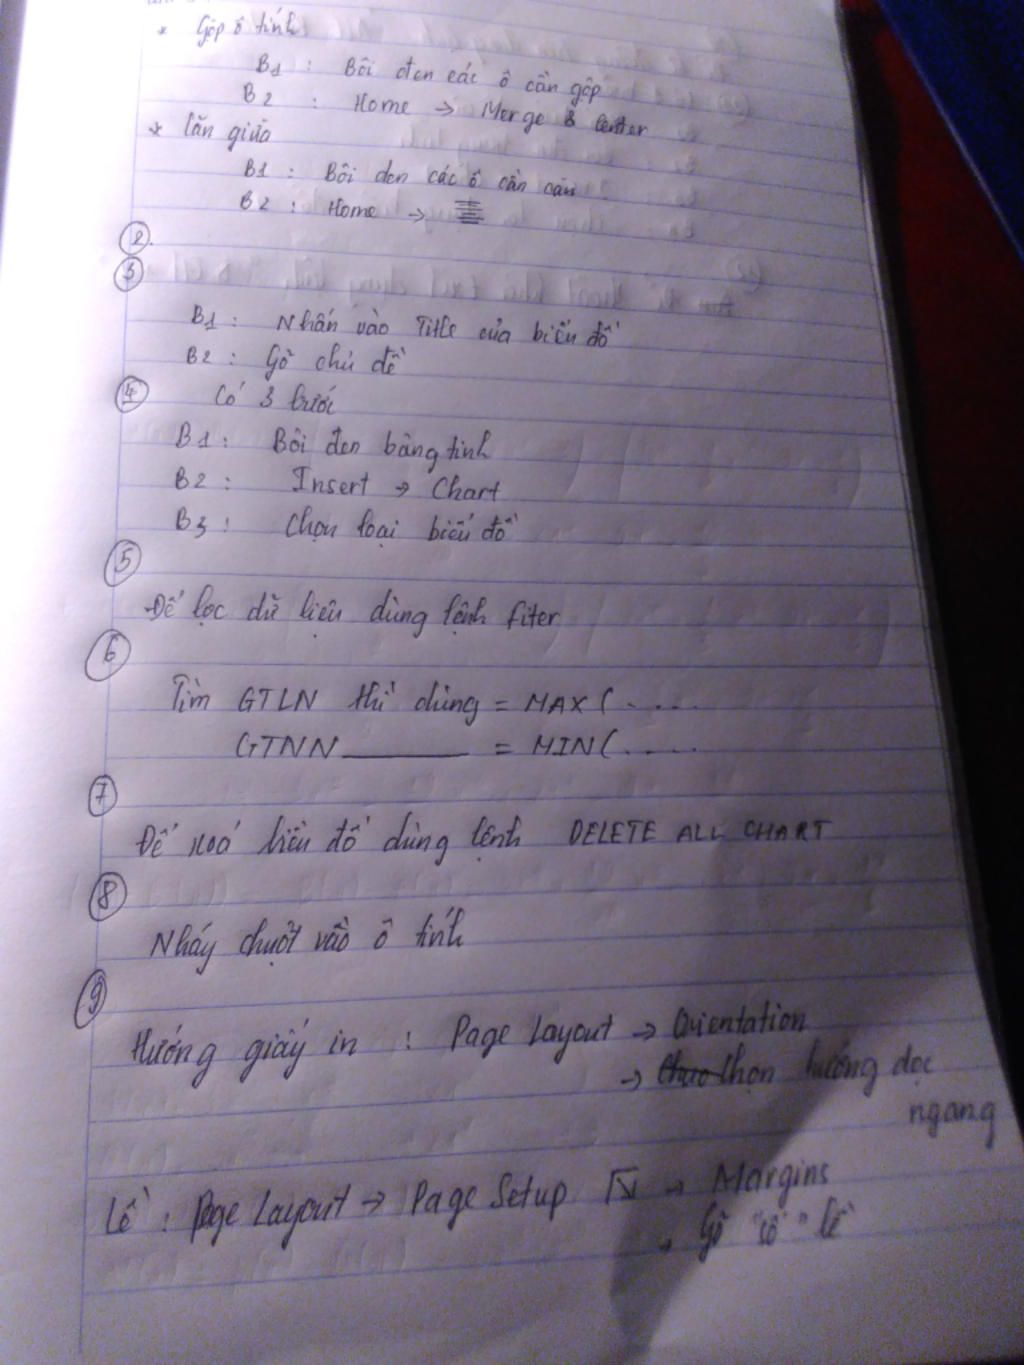 * Gộp ô tính
B1 : Bôi đen các ô cần gộp
B2 : Home → Merge & Center
* Căn giữa
B1 : Bôi đen các ô cần căn
B2 : Home →
②.
③
B1 : Nhấn vào Title của biểu đồ
B2 : Gõ chủ đề
④ Có 3 bước
B1 : Bôi đen bảng tính
B2 : Insert → Chart
B3 : Chọn loại biểu đồ
⑤
Để lọc dữ liệu dùng lệnh fiter
⑥
Tìm GTLN thì dùng = MAX( ....
GTNN ______ = MIN( .....
⑦
Để xoá biểu đồ dùng lệnh DELETE ALL CHART
⑧
Nháy chuột vào ô tính
⑨
Hướng giấy in : Page Layout → Orientation
→ Chọn hướng dọc
ngang
Lề : Page Layout → Page Setup → Margins
Gõ lề